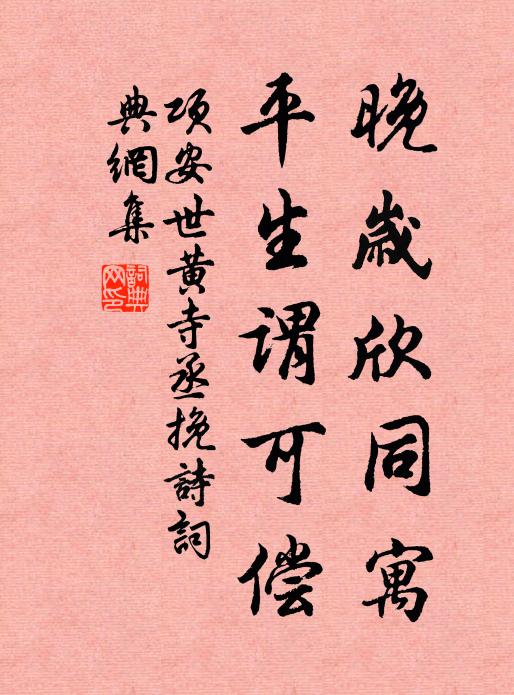 晚歲欣同寓
平生謂可偿
項安世黄寺丞挽詩詞
典網集
詞典
网印